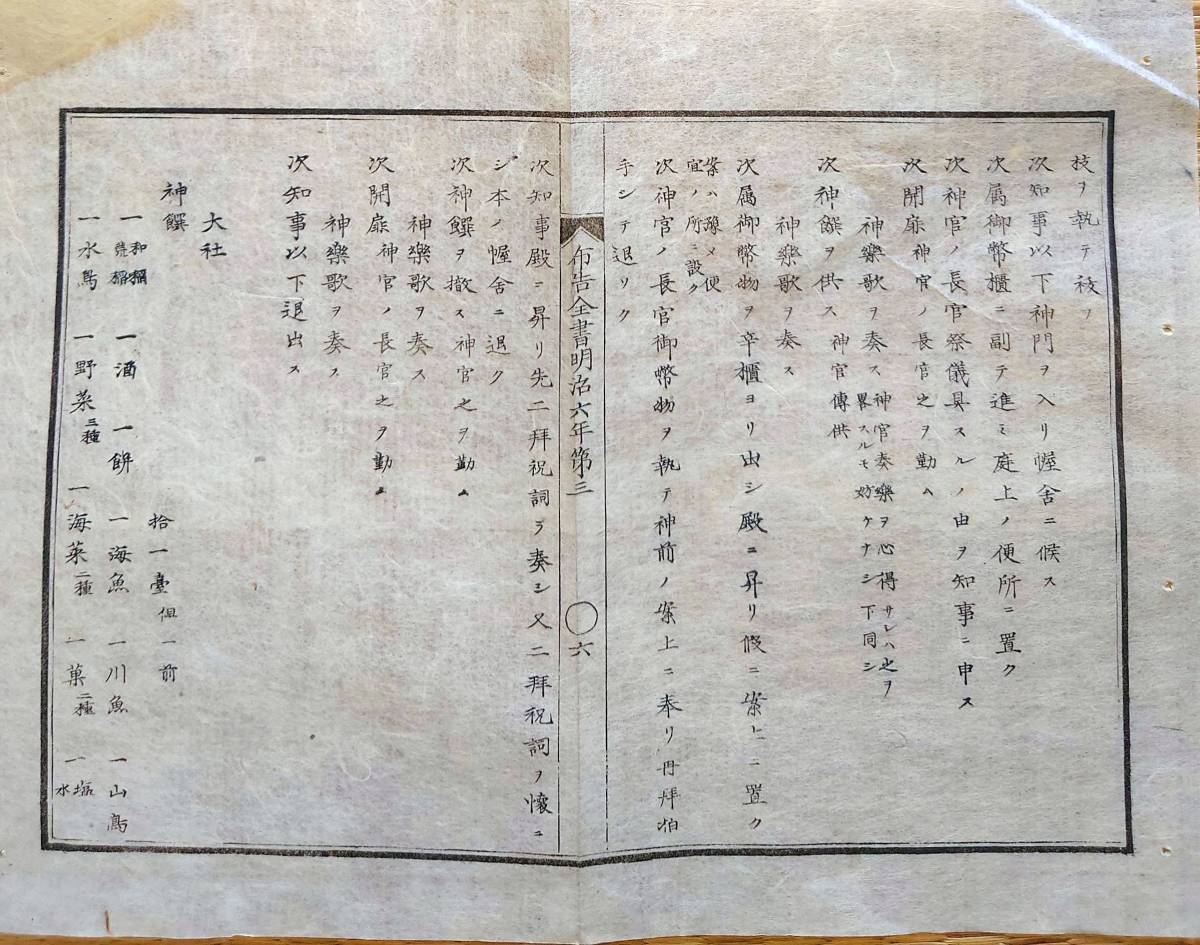 枝ヲ執テ祓フ
次知事以下神門ヲ入リ幄舎ニ候ス
次属御幣櫃ニ副テ進ミ庭上ノ便所ニ置ク
次神官ノ長官祭儀具スルノ由ヲ知事ニ申ス
次開扉神官ノ長官之ヲ勤ム
神樂歌ヲ奏ス神官奏樂ヲ心得サレハ之ヲ
畧スルモ妨ケナシ下同シ
次神饌ヲ供ス神官傳供
神樂歌ヲ奏ス
次属御幣物ヲ辛櫃ヨリ出シ殿ニ昇リ假ニ案上ニ置ク
案ハ豫メ便
宜ノ所ニ設ク
次神官ノ長官御幣物ヲ執テ神前ノ案上ニ奉リ再拝拍
手シテ退リク
布告全書明治六年第三 〇六
次知事殿ニ昇リ先二拝祝詞ヲ奏シ又二拝祝詞ヲ懐ニ
シ本ノ幄舎ニ退ク
次神饌ヲ撤ス神官之ヲ勤ム
神樂歌ヲ奏ス
次閉扉神官ノ長官之ヲ勤ム
神樂歌ヲ奏ス
次知事以下退出ス
大社
神饌 拾一臺但一前
一和稲荒稲 一酒 一餅 一海魚 一川魚 一山鳥
一水鳥 一野菜三種 一海菜二種 一菓二種 一塩水